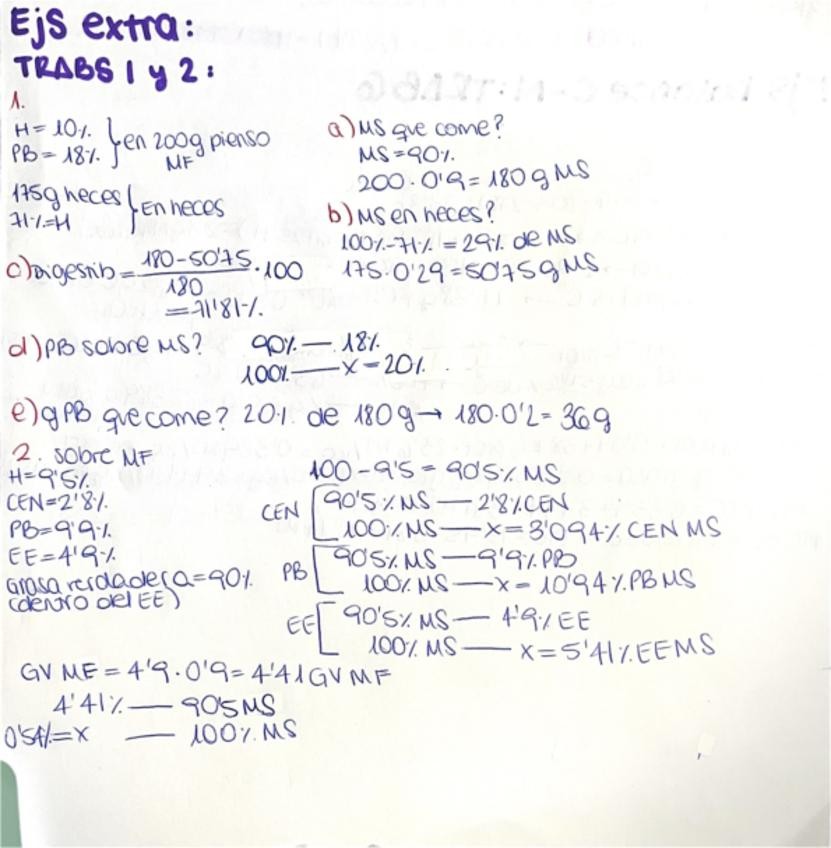 Ejs extra:
TRABS 1 y 2:
1.
H = 10%
PB = 18% } en 200g pienso MF
175g heces
71% = H } En heces
a) MS que come?
MS = 90%
200 · 0'9 = 180 g MS
b) MS en heces?
100% - 71% = 29% de MS
175 · 0'29 = 50'75 g MS
c) Digestib = 180 - 50'75 / 180 · 100
= 71'81%
d) PB sobre MS? 90% — 18%
100% — x = 20%
e) g PB que come? 20% de 180 g → 180 · 0'2 = 36 g
2. sobre MF
H = 9'5%
CEN = 2'8%
PB = 9'9%
EE = 4'9%
Grasa verdadera = 90%
(dentro del EE)
100 - 9'5 = 90'5% MS
CEN [ 90'5% MS — 2'8% CEN
100% MS — x = 3'094% CEN MS
PB [ 90'5% MS — 9'9% PB
100% MS — x = 10'94% PB MS
EE [ 90'5% MS — 4'9% EE
100% MS — x = 5'41% EE MS
GV MF = 4'9 · 0'9 = 4'41 GV MF
4'41% — 90'5 MS
0'54% = x — 100% MS